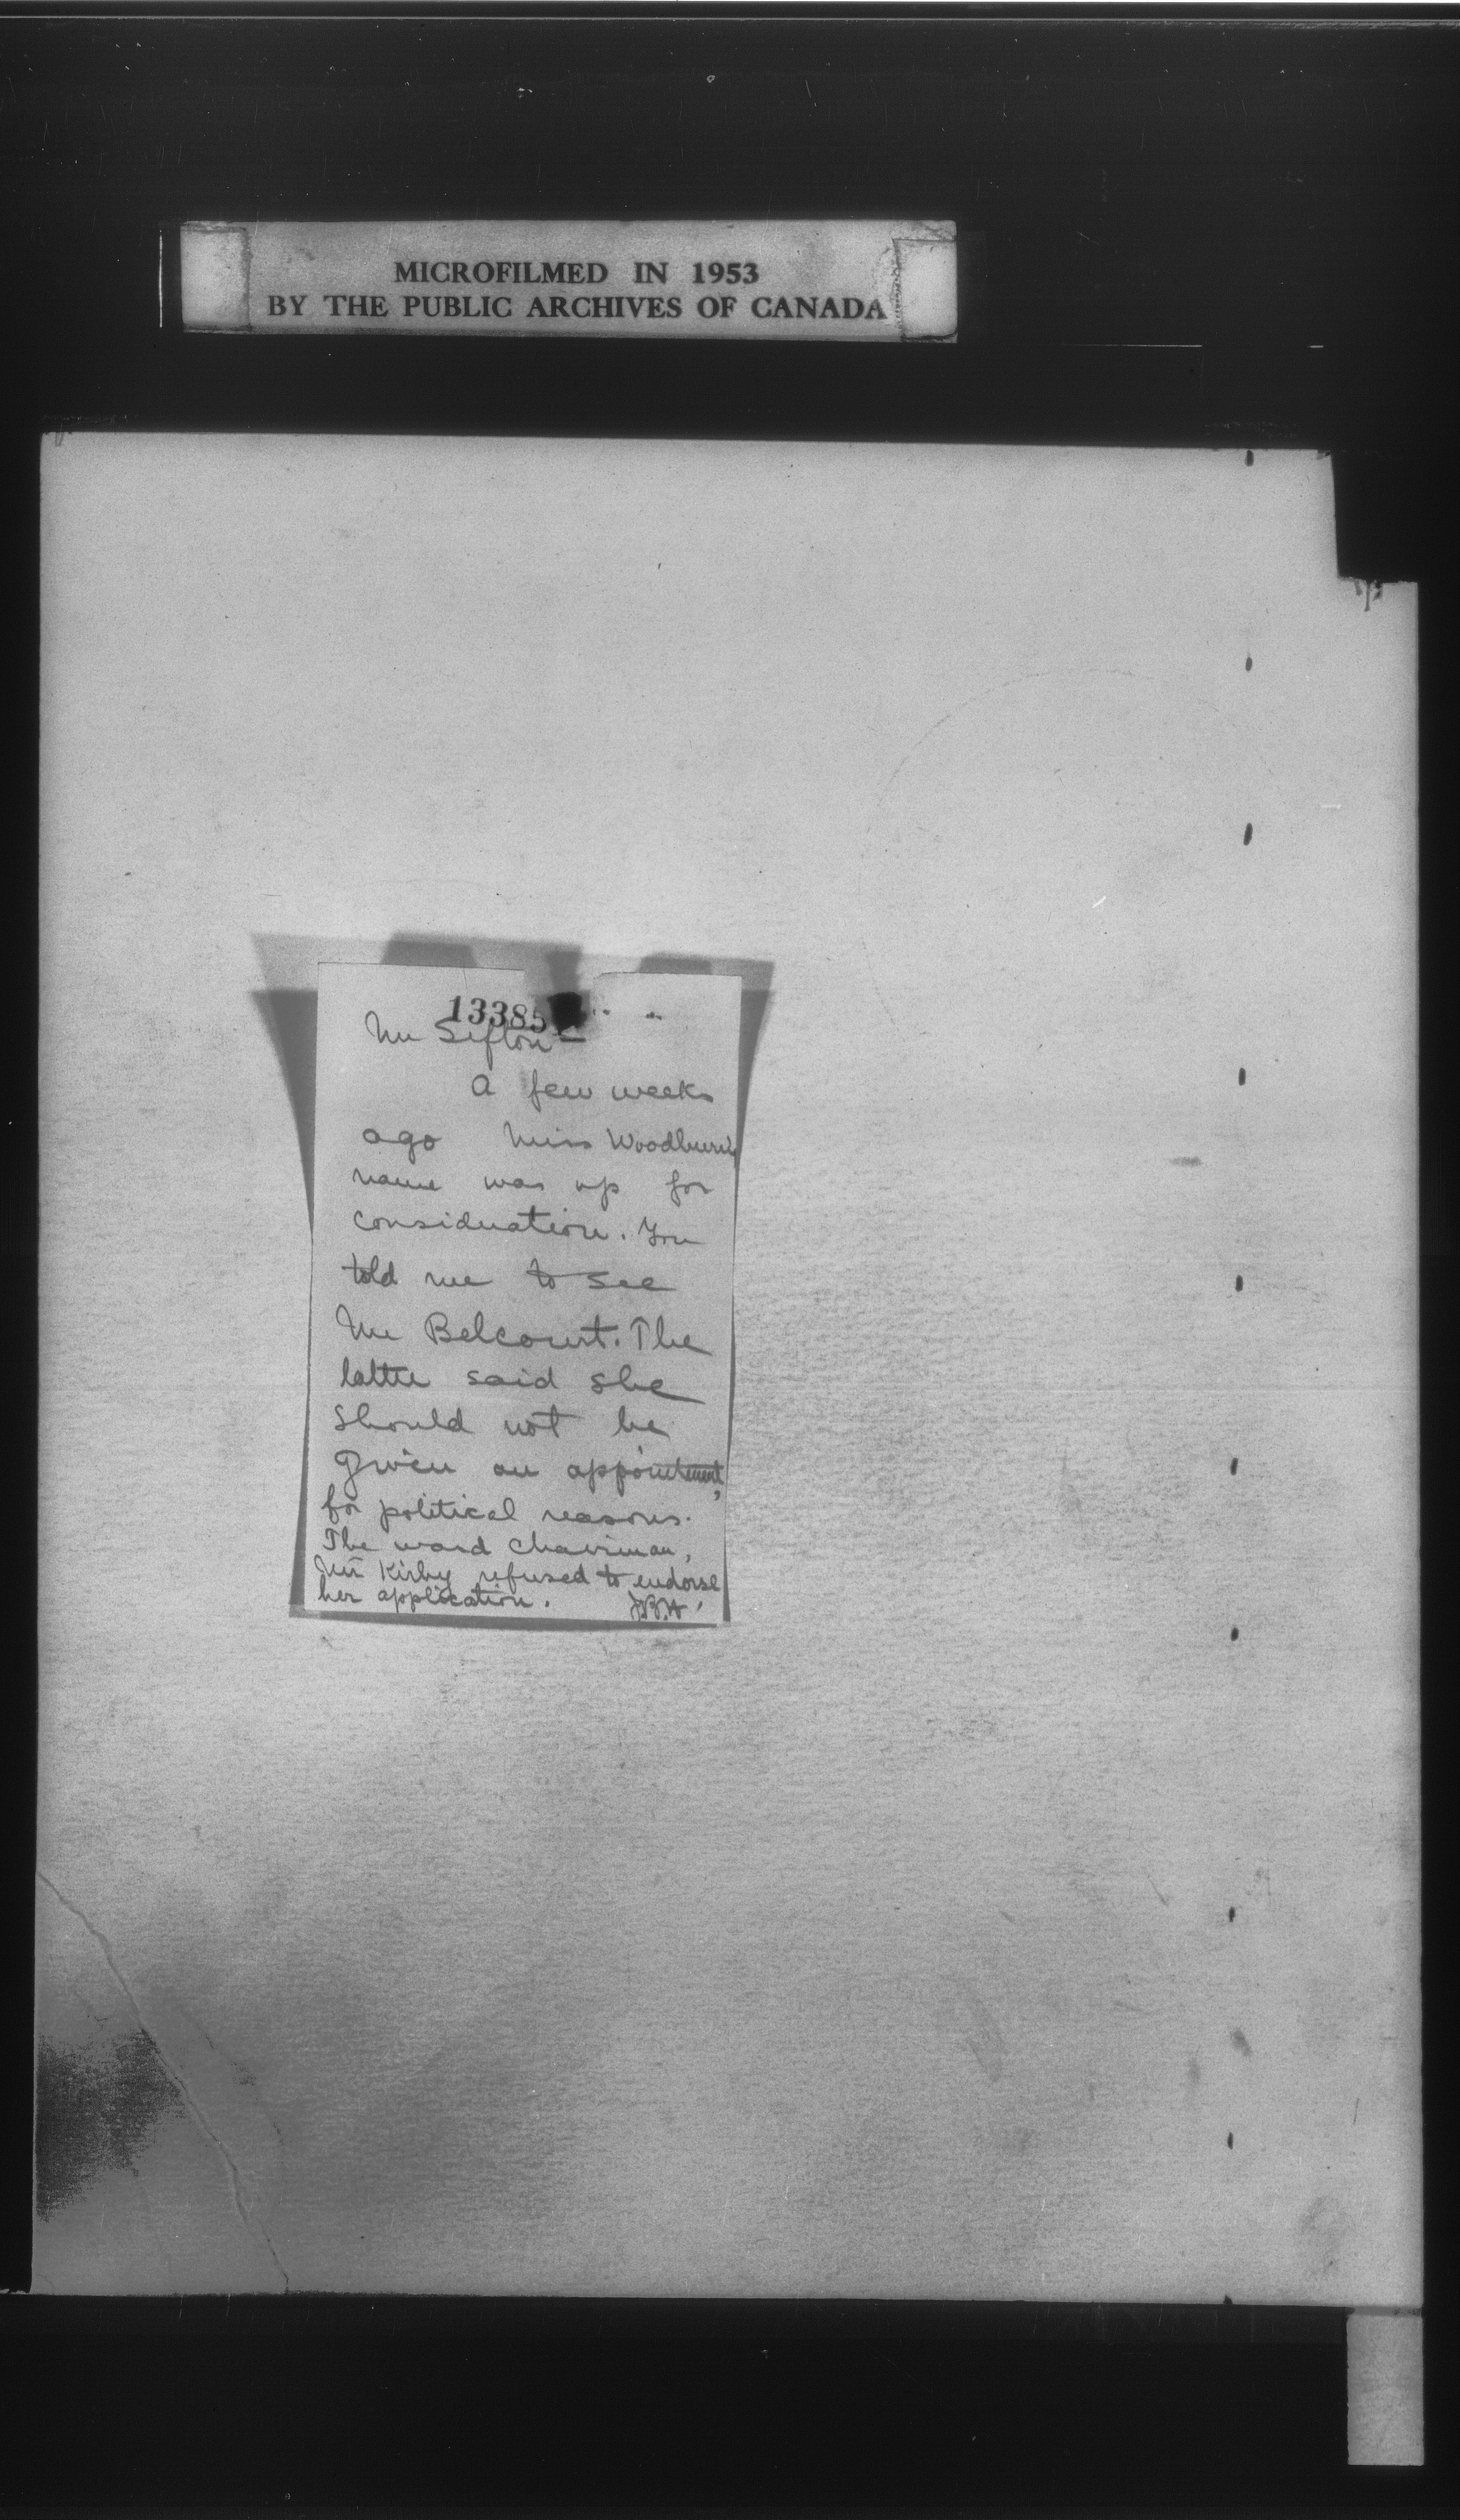 MICROFILMED IN 1953
BY THE PUBLIC ARCHIVES OF CANADA
13385
Mr Sifton —
A few weeks
ago Miss Woodburn's
name was up for
consideration. You
told me to see
Mr Belcourt. The
latter said she
should not be
given an appointment,
for political reasons.
The ward chairman,
Mr Kirby refused to endorse
her application.